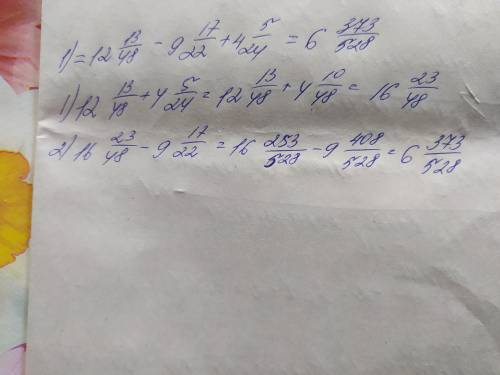 1) = 12 13/48 - 9 17/22 + 4 5/24 = 6 373/528
1) 12 13/48 + 4 5/24 = 12 13/48 + 4 10/48 = 16 23/48
2) 16 23/48 - 9 17/22 = 16 253/528 - 9 408/528 = 6 373/528